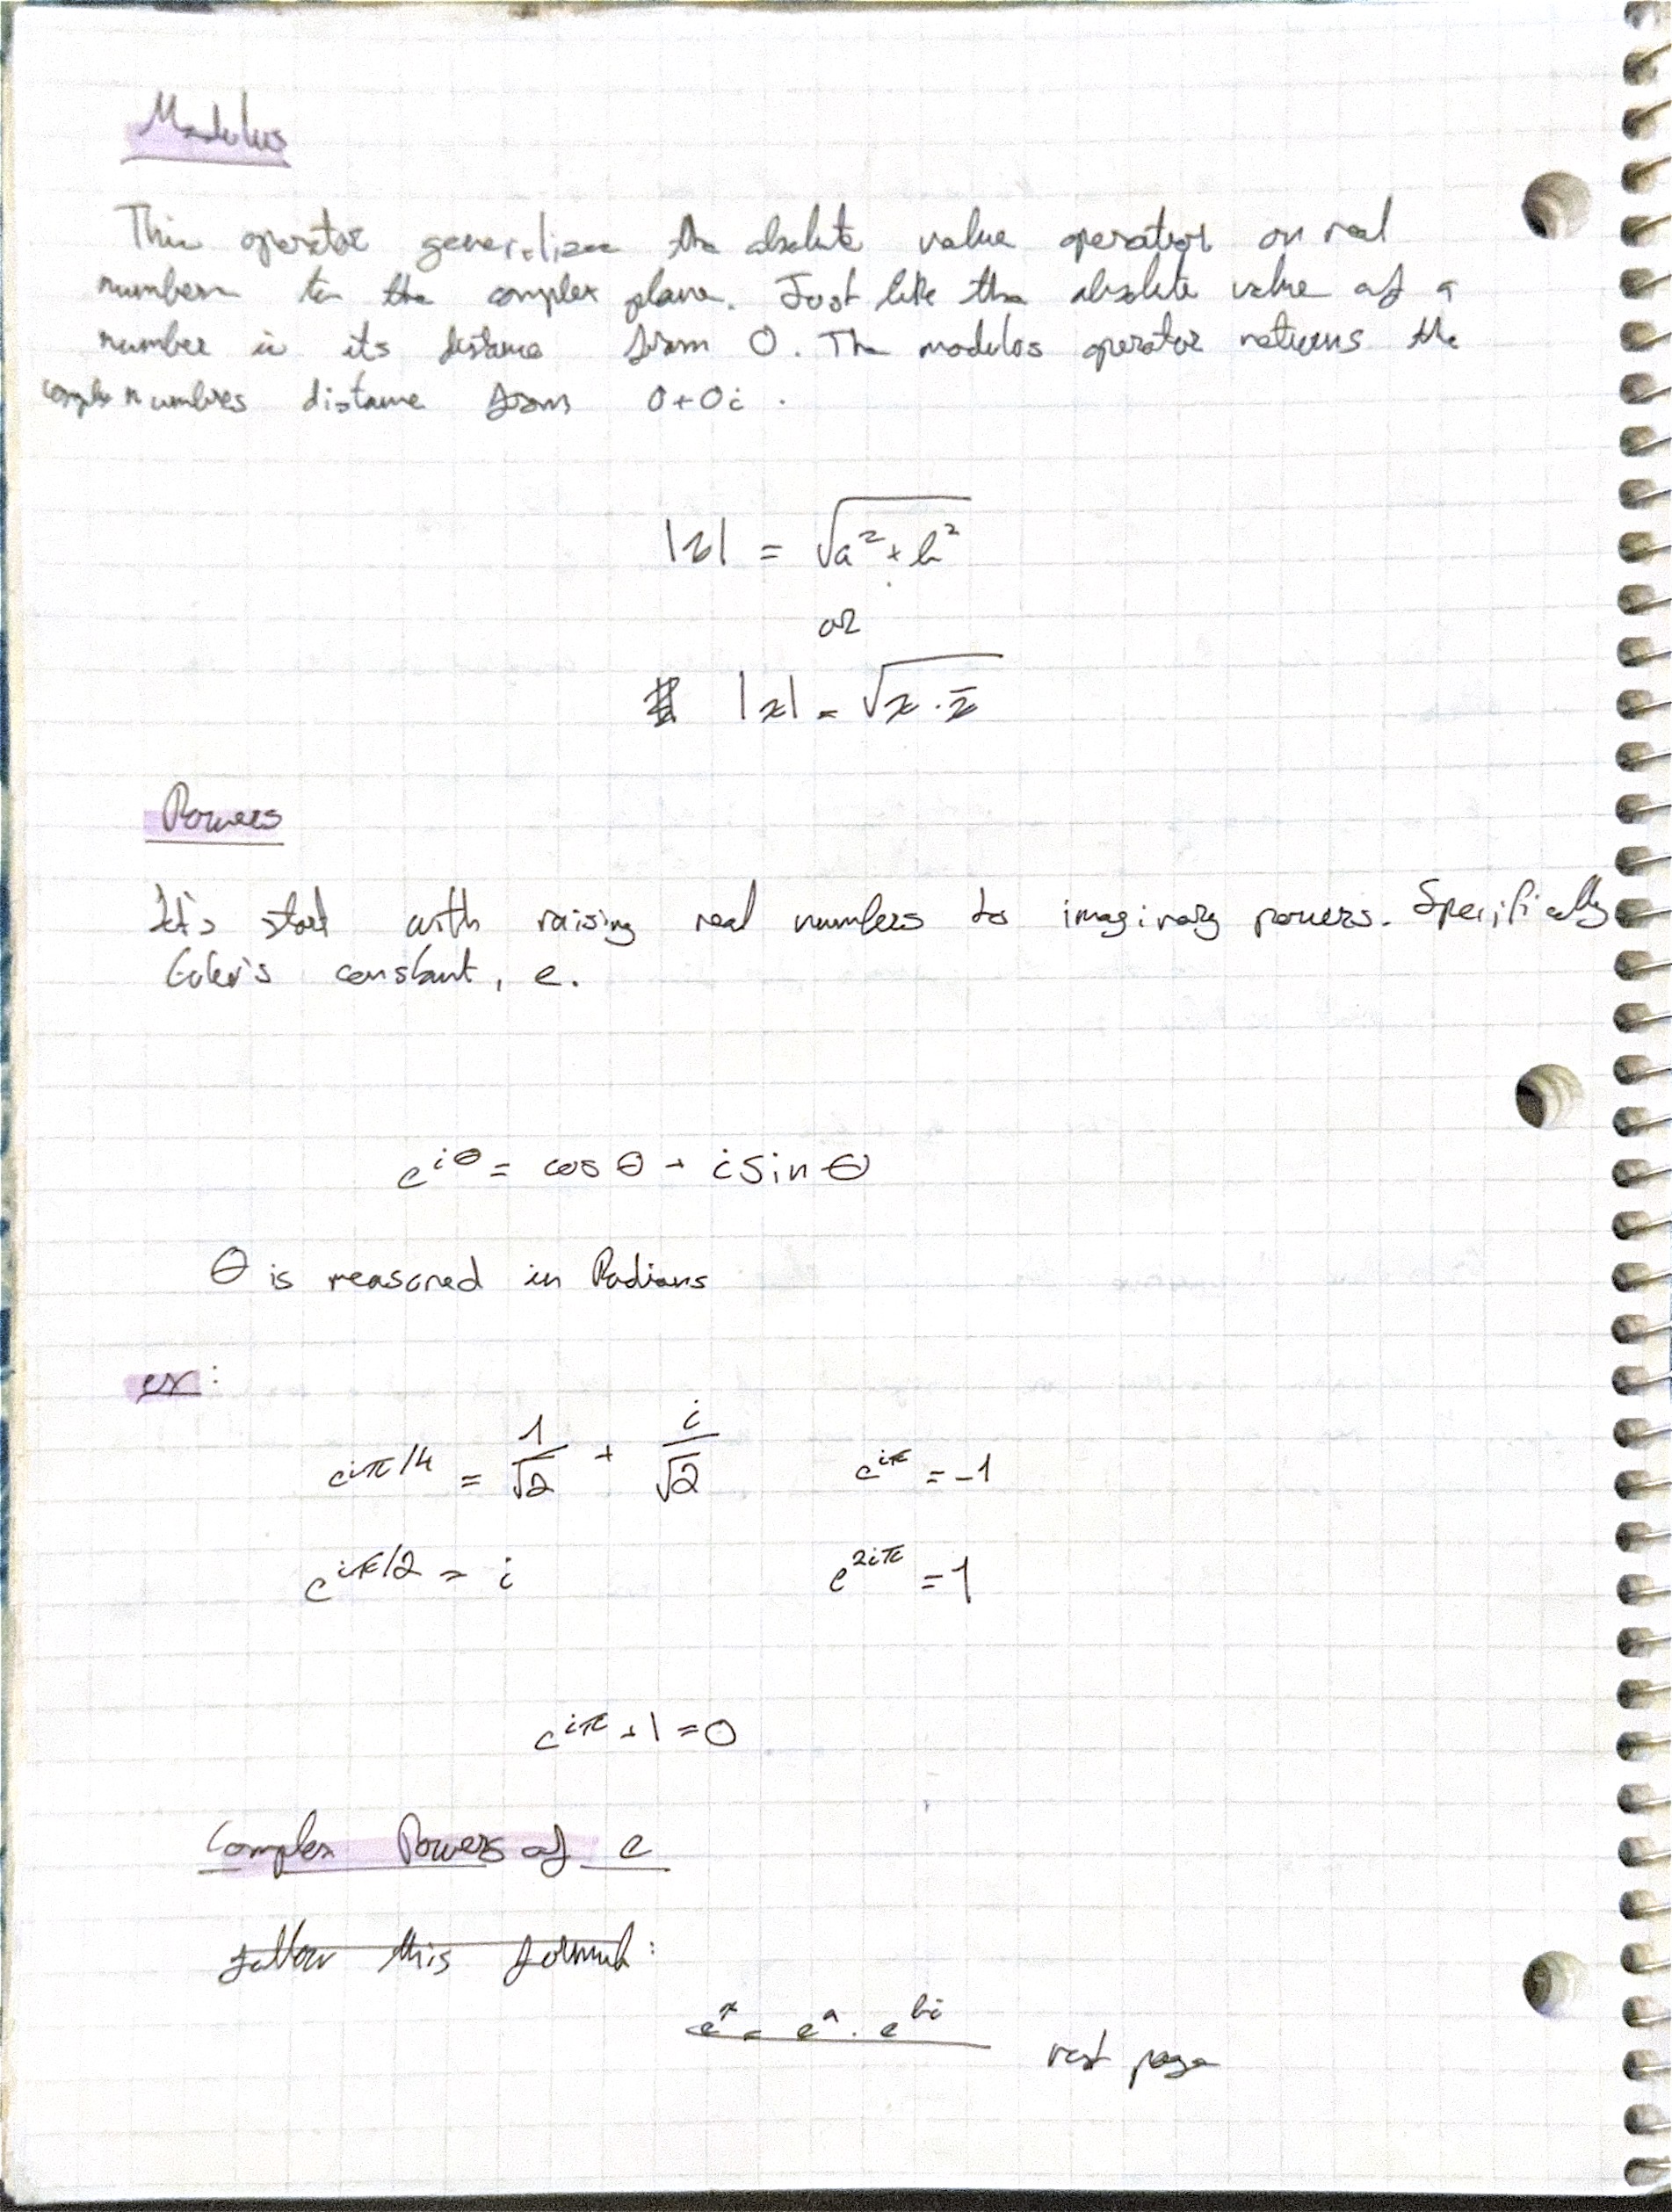 Modulus
This operator generalizes the absolute value operator on real
numbers to the complex plane. Just like the absolute value of a
number is its distance from 0. The modulos operator returns the
complex numbers distance from 0+0i.
|z| = √(a² + b²)
or
|z| = √(z · z̄)
Powers
Let's start with raising real numbers to imaginary powers. Specifically
Euler's constant, e.
e^{iθ} = cos θ + i sin θ
θ is measured in Radians
ex:
e^{iπ/4} = 1/√2 + i/√2 e^{iπ} = -1
e^{iπ/2} = i e^{2iπ} = 1
e^{iπ} + 1 = 0
Complex Powers of e
follow this formula:
e^z = e^a · e^{bi}
next page